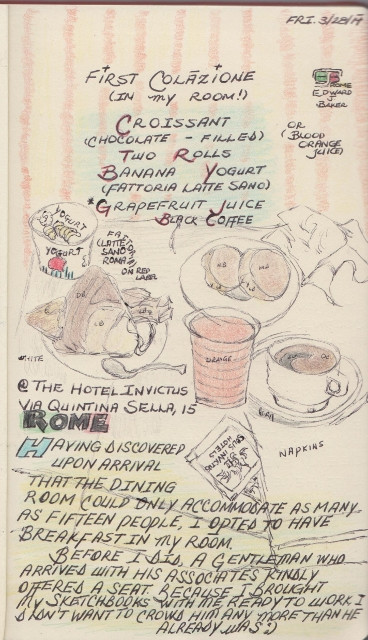 FRI. 3/28/14
FIRST COLAZIONE
(IN MY ROOM!)
ROME
EDWARD
J.
BAKER
CROISSANT
(CHOCOLATE - FILLED)
TWO ROLLS
BANANA YOGURT
(FATTORIA LATTE SANO)
*GRAPEFRUIT JUICE
BLACK COFFEE
OR
(BLOOD
ORANGE
JUICE)
YOGURT
YOGURT
LATTE
SANO
ROMA
ON RED
LABEL
WHITE
ORANGE
@ THE HOTEL INVICTUS
VIA QUINTINA SELLA, 15
ROME
NAPKINS
HAVING DISCOVERED
UPON ARRIVAL
THAT THE DINING
ROOM COULD ONLY ACCOMMODATE AS MANY
AS FIFTEEN PEOPLE, I OPTED TO HAVE
BREAKFAST IN MY ROOM.
BEFORE I DID, A GENTLEMAN WHO
ARRIVED WITH HIS ASSOCIATES KINDLY
OFFERED A SEAT. BECAUSE I BROUGHT
MY SKETCHBOOKS WITH ME READY TO WORK I
DIDN'T WANT TO CROWD HIM ANY MORE THAN HE
ALREADY WAS :)